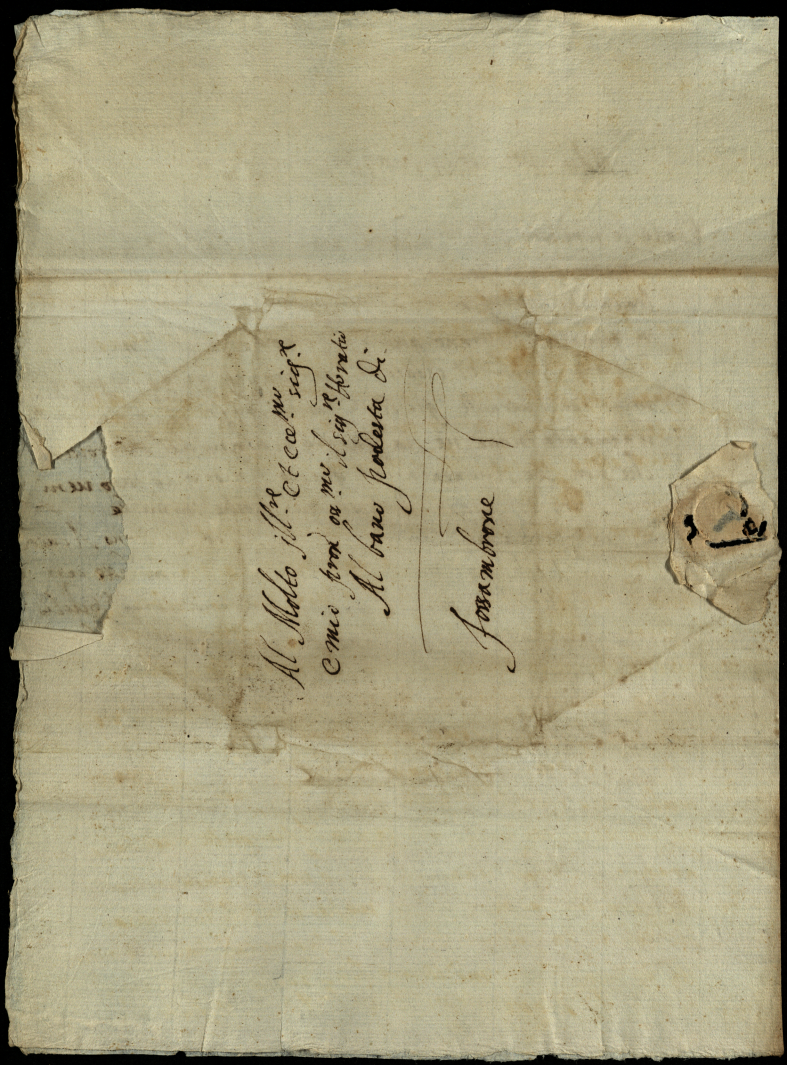 Al Molto Ill.re et ecc.mo sig.re
e mio pron oss.mo il sig.re Horatio
Albano podesta di
fossambrone